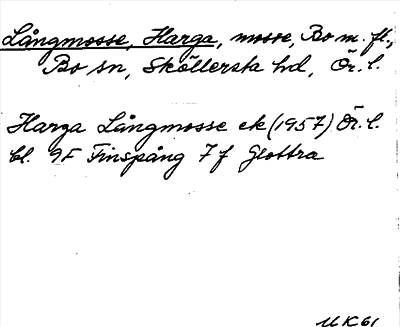 Långmosse, Harga, mosse, Bo m. fl.,
Bo sn, Sköllersta hd, Ör. l.
Harga Långmosse ek (1957) Ör. l.
bl. 9F Finspång 7 f Glottra
MK61